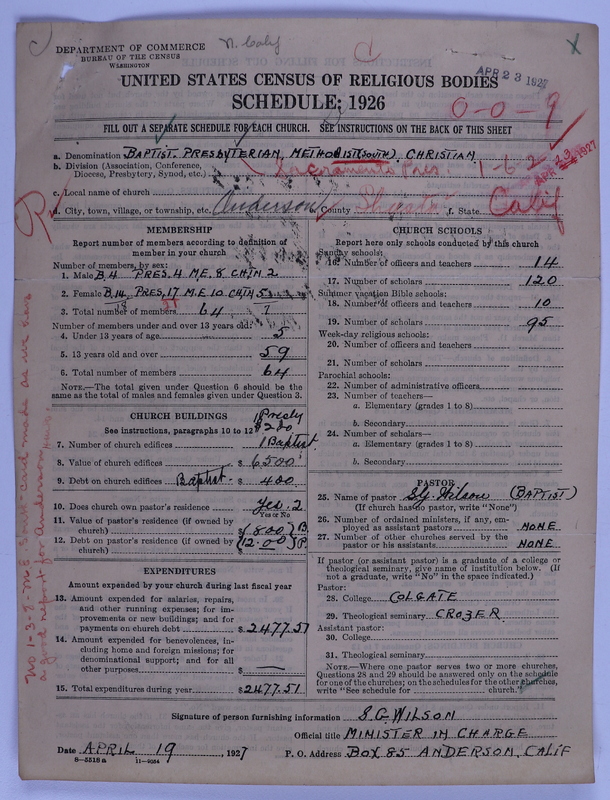 DEPARTMENT OF COMMERCE
BUREAU OF THE CENSUS
WASHINGTON
N. Calif
C
APR 23 1927
UNITED STATES CENSUS OF RELIGIOUS BODIES
SCHEDULE: 1926
0-0-9
FILL OUT A SEPARATE SCHEDULE FOR EACH CHURCH. SEE INSTRUCTIONS ON THE BACK OF THIS SHEET
a. Denomination BAPTIST. PRESBYTERIAN, METHODIST (SOUTH). CHRISTIAN
b. Division (Association, Conference, Diocese, Presbytery, Synod, etc.) Sacramento Pres. 1-6-2
APR 23 1927
c. Local name of church
d. City, town, village, or township, etc. Anderson County Shasta f. State Calif
MEMBERSHIP
Report number of members according to definition of member in your church
Number of members by sex:
1. Male B.4 PRES.4 M.E. 8 CHTN 2
2. Female B.14 PRES,17 M.E 10 CHTN 5
3. Total number of members 18 21 64 7
Number of members under and over 13 years old:
4. Under 13 years of age 5
5. 13 years old and over 59
6. Total number of members 64
NOTE.—The total given under Question 6 should be the same as the total of males and females given under Question 3.
CHURCH BUILDINGS
See instructions, paragraphs 10 to 12
1 Presby
7. Number of church edifices 1 Baptist
8. Value of church edifices $ 6500
9. Debt on church edifices Baptist. $ 400
10. Does church own pastor's residence Yes. 2
Yes or No
11. Value of pastor's residence (if owned by church) $ (800) B
12. Debt on pastor's residence (if owned by church)
EXPENDITURES
Amount expended by your church during last fiscal year
13. Amount expended for salaries, repairs, and other running expenses; for improvements or new buildings; and for payments on church debt $ 2477.51
14. Amount expended for benevolences, including home and foreign missions; for denominational support; and for all other purposes $ —
15. Total expenditures during year $ 2477.51
CHURCH SCHOOLS
Report here only schools conducted by this church
Sunday schools:
16. Number of officers and teachers 14
17. Number of scholars 120
Summer vacation Bible schools:
18. Number of officers and teachers 10
19. Number of scholars 95
Week-day religious schools:
20. Number of officers and teachers
21. Number of scholars
Parochial schools:
22. Number of administrative officers
23. Number of teachers—
a. Elementary (grades 1 to 8)
b. Secondary
24. Number of scholars—
a. Elementary (grades 1 to 8)
b. Secondary
PASTOR
25. Name of pastor S.G. Wilson (BAPTIST)
(If church has no pastor, write "None")
26. Number of ordained ministers, if any, employed as assistant pastors NONE
27. Number of other churches served by the pastor or his assistants NONE
If pastor (or assistant pastor) is a graduate of a college or theological seminary, give name of institution below. (If not a graduate, write "No" in the space indicated.)
Pastor:
28. College COLGATE
29. Theological seminary CROZER
Assistant pastor:
30. College
31. Theological seminary
NOTE.—Where one pastor serves two or more churches, Questions 28 and 29 should be answered only on the schedule for one of the churches; on the schedules for the other churches, write "See schedule for church."
Signature of person furnishing information S.G. WILSON
Official title MINISTER IN CHARGE
Date APRIL 19, 1927 P. O. Address BOX 85 ANDERSON, CALIF
8-5518a 11-9054
No 1-3-8- M E South card made as we have
a good report for Anderson